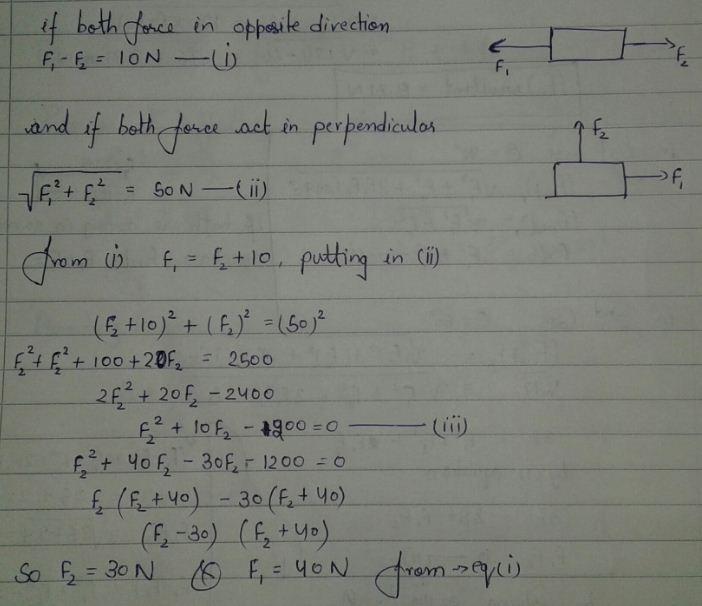 if both force in opposite direction
F₁ - F₂ = 10N —(i)
F₁ F₂
and if both force act in perpendicular
F₂
√F₁² + F₂² = 50N —(ii)
F₁
from (i) F₁ = F₂ + 10, putting in (ii)
(F₂ + 10)² + (F₂)² = (50)²
F₂² + F₂² + 100 + 20F₂ = 2500
2F₂² + 20F₂ - 2400
F₂² + 10F₂ - 1200 = 0 —(iii)
F₂² + 40F₂ - 30F₂ - 1200 = 0
F₂ (F₂ + 40) - 30 (F₂ + 40)
(F₂ - 30) (F₂ + 40)
So F₂ = 30N & F₁ = 40N from → eq(i)